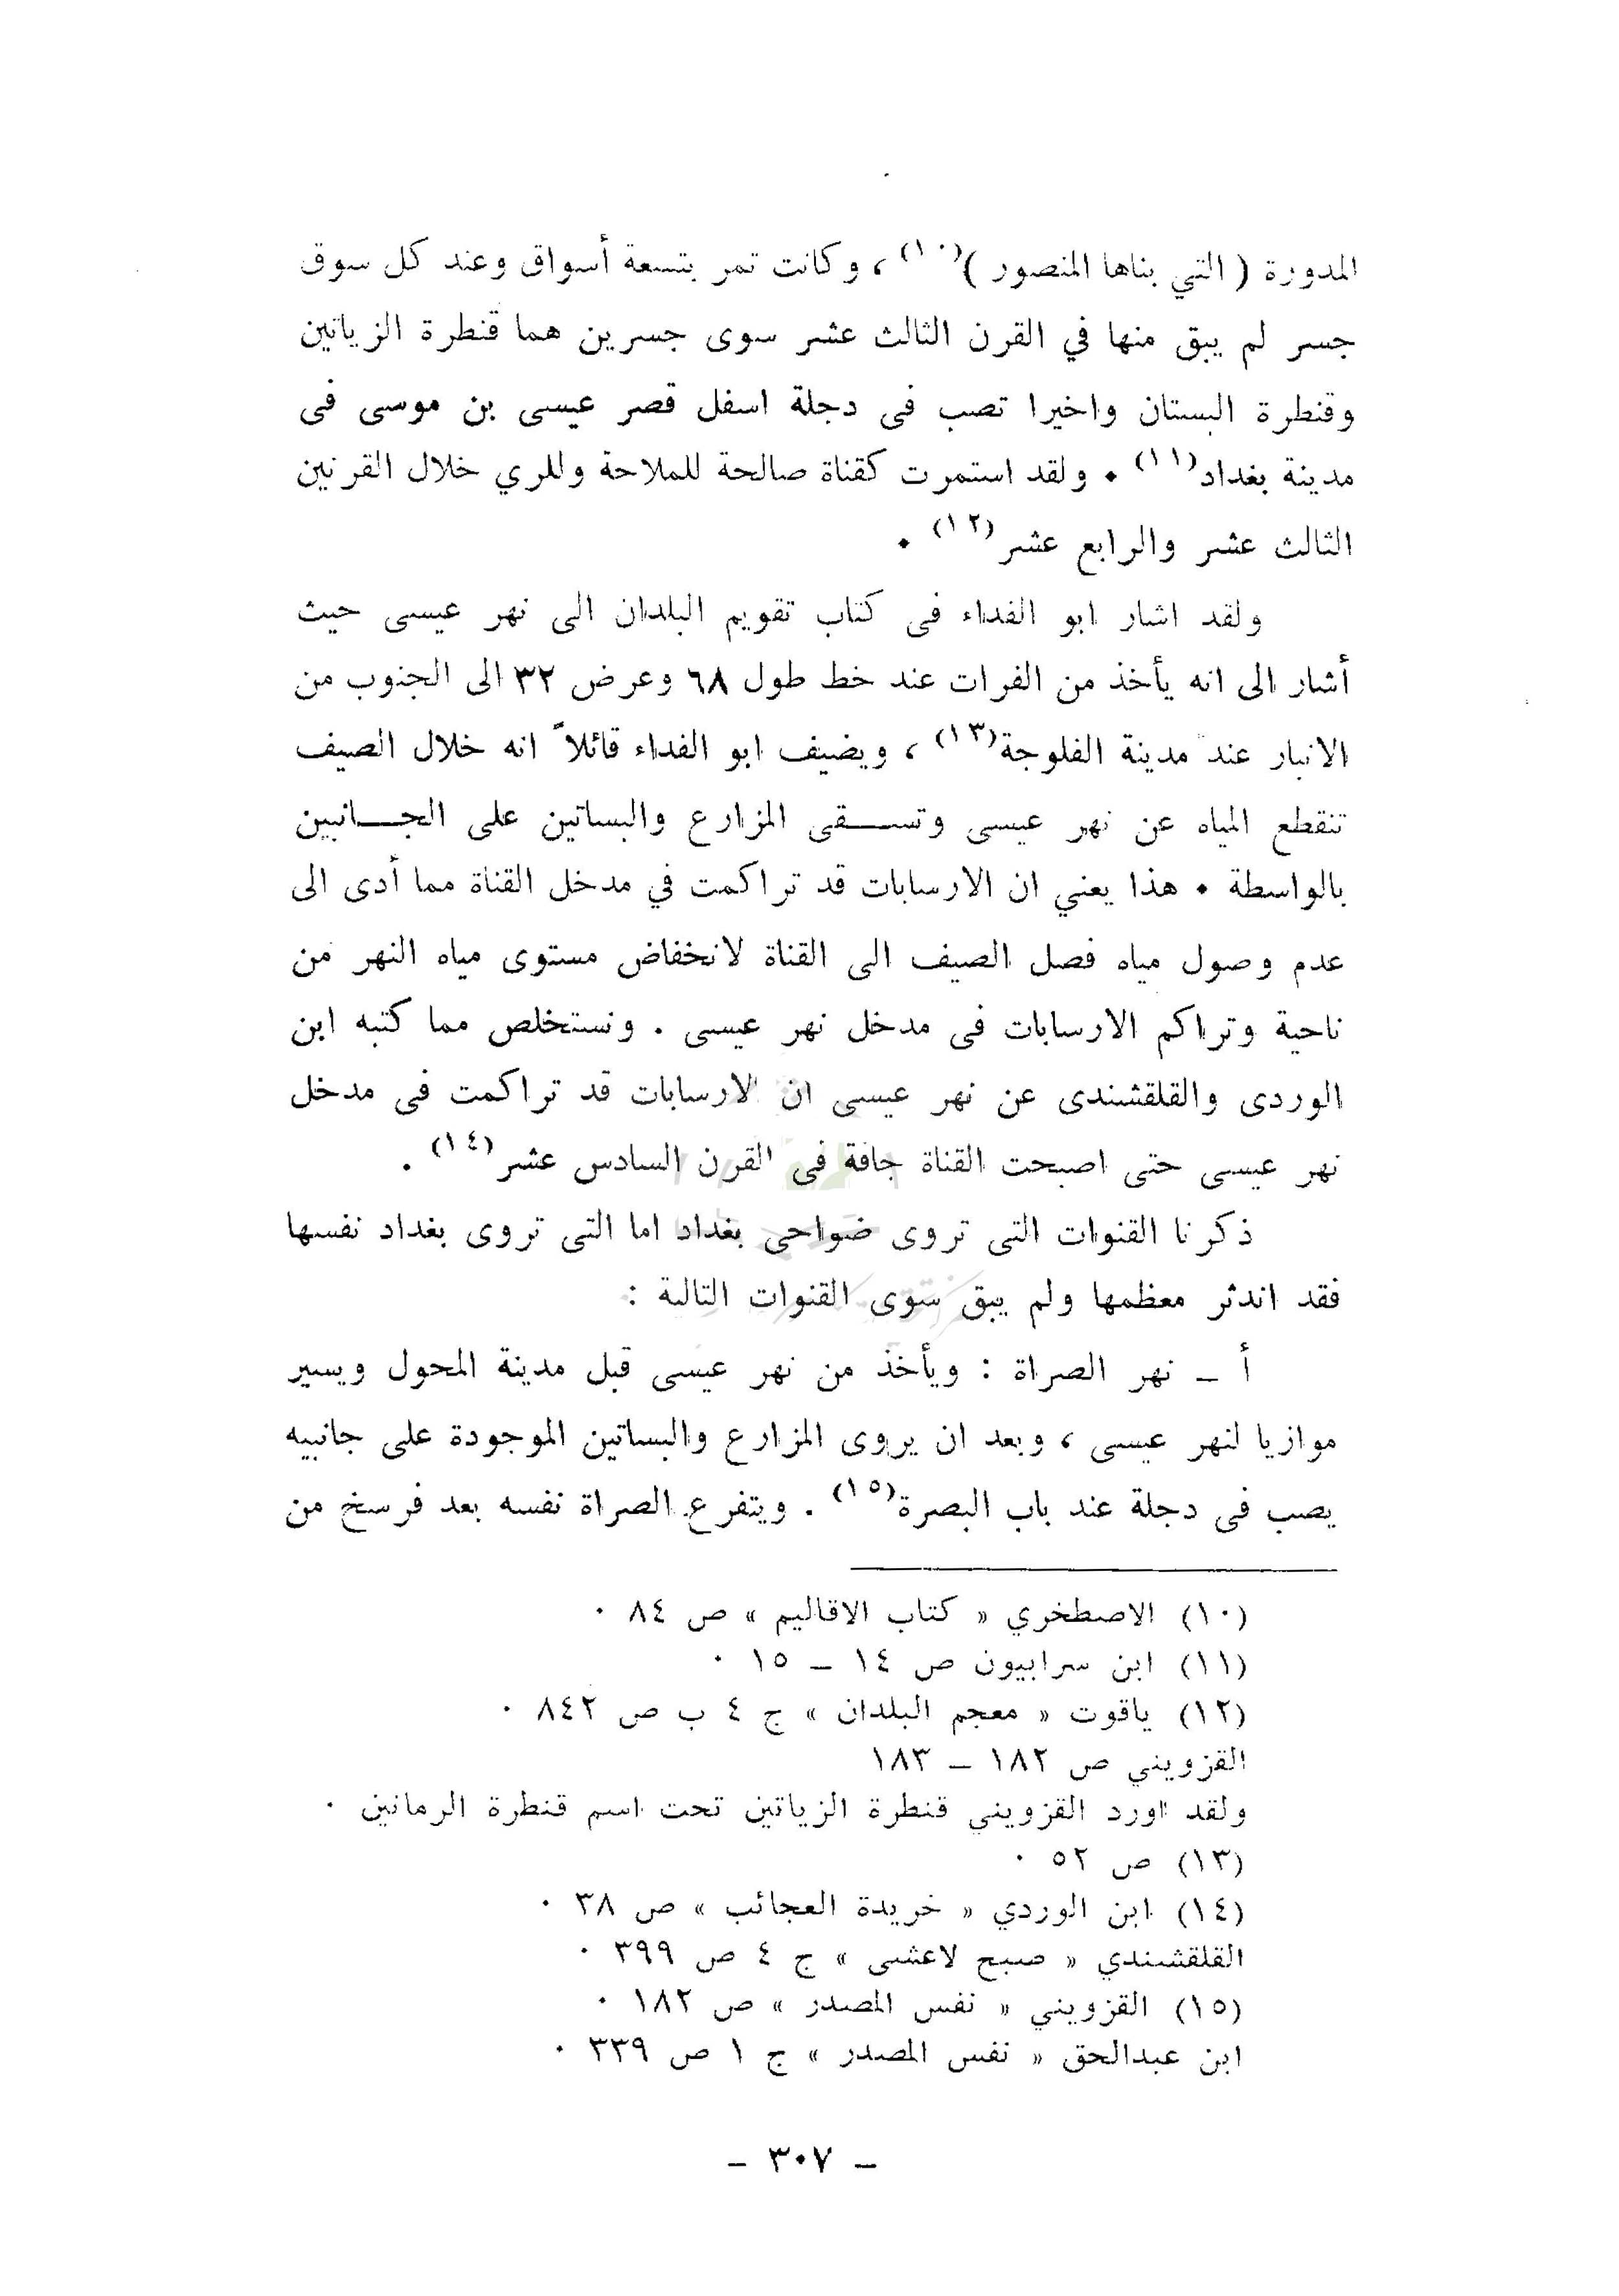 المدورة ( التي بناها المنصور )(١٠) ، وكانت تمر بتسعة أسواق وعند كل سوق
جسر لم يبق منها في القرن الثالث عشر سوى جسرين هما قنطرة الزياتين
وقنطرة البستان واخيرا تصب فى دجلة اسفل قصر عيسى بن موسى فى
مدينة بغداد(١١) ٠ ولقد استمرت كقناة صالحة للملاحة وللري خلال القرنين
الثالث عشر والرابع عشر(١٢) ٠
ولقد اشار ابو الفداء فى كتاب تقويم البلدان الى نهر عيسى حيث
أشار الى انه يأخذ من الفرات عند خط طول ٦٨ وعرض ٣٢ الى الجنوب من
الانبار عند مدينة الفلوجة(١٣) ، ويضيف ابو الفداء قائلاً انه خلال الصيف
تنقطع المياه عن نهر عيسى وتســقى المزارع والبساتين على الجــانبين
بالواسطة ٠ هذا يعني ان الارسابات قد تراكمت في مدخل القناة مما أدى الى
عدم وصول مياه فصل الصيف الى القناة لانخفاض مستوى مياه النهر من
ناحية وتراكم الارسابات فى مدخل نهر عيسى . ونستخلص مما كتبه ابن
الوردى والقلقشندى عن نهر عيسى ان الارسابات قد تراكمت فى مدخل
نهر عيسى حتى اصبحت القناة جافة فى القرن السادس عشر(١٤) .
ذكرنا القنوات التى تروى ضواحى بغداد اما التى تروى بغداد نفسها
فقد اندثر معظمها ولم يبق سوى القنوات التالية :
أ ـ نهر الصراة : ويأخذ من نهر عيسى قبل مدينة المحول ويسير
موازيا لنهر عيسى ، وبعد ان يروى المزارع والبساتين الموجودة على جانبيه
يصب فى دجلة عند باب البصرة(١٥) . ويتفرع الصراة نفسه بعد فرسخ من
(١٠) الاصطخري « كتاب الاقاليم » ص ٨٤ ٠
(١١) ابن سرابيون ص ١٤ ـ ١٥ ٠
(١٢) ياقوت « معجم البلدان » ج ٤ ب ص ٨٤٢ ٠
القزويني ص ١٨٢ ـ ١٨٣
ولقد اورد القزويني قنطرة الزياتين تحت اسم قنطرة الرمانين ٠
(١٣) ص ٥٢ ٠
(١٤) ابن الوردي « خريدة العجائب » ص ٣٨ ٠
القلقشندي « صبح لاعشى » ج ٤ ص ٣٩٩ ٠
(١٥) القزويني « نفس المصدر » ص ١٨٢ ٠
ابن عبدالحق « نفس المصدر » ج ١ ص ٣٣٩ ٠
ـ ٣٠٧ ـ